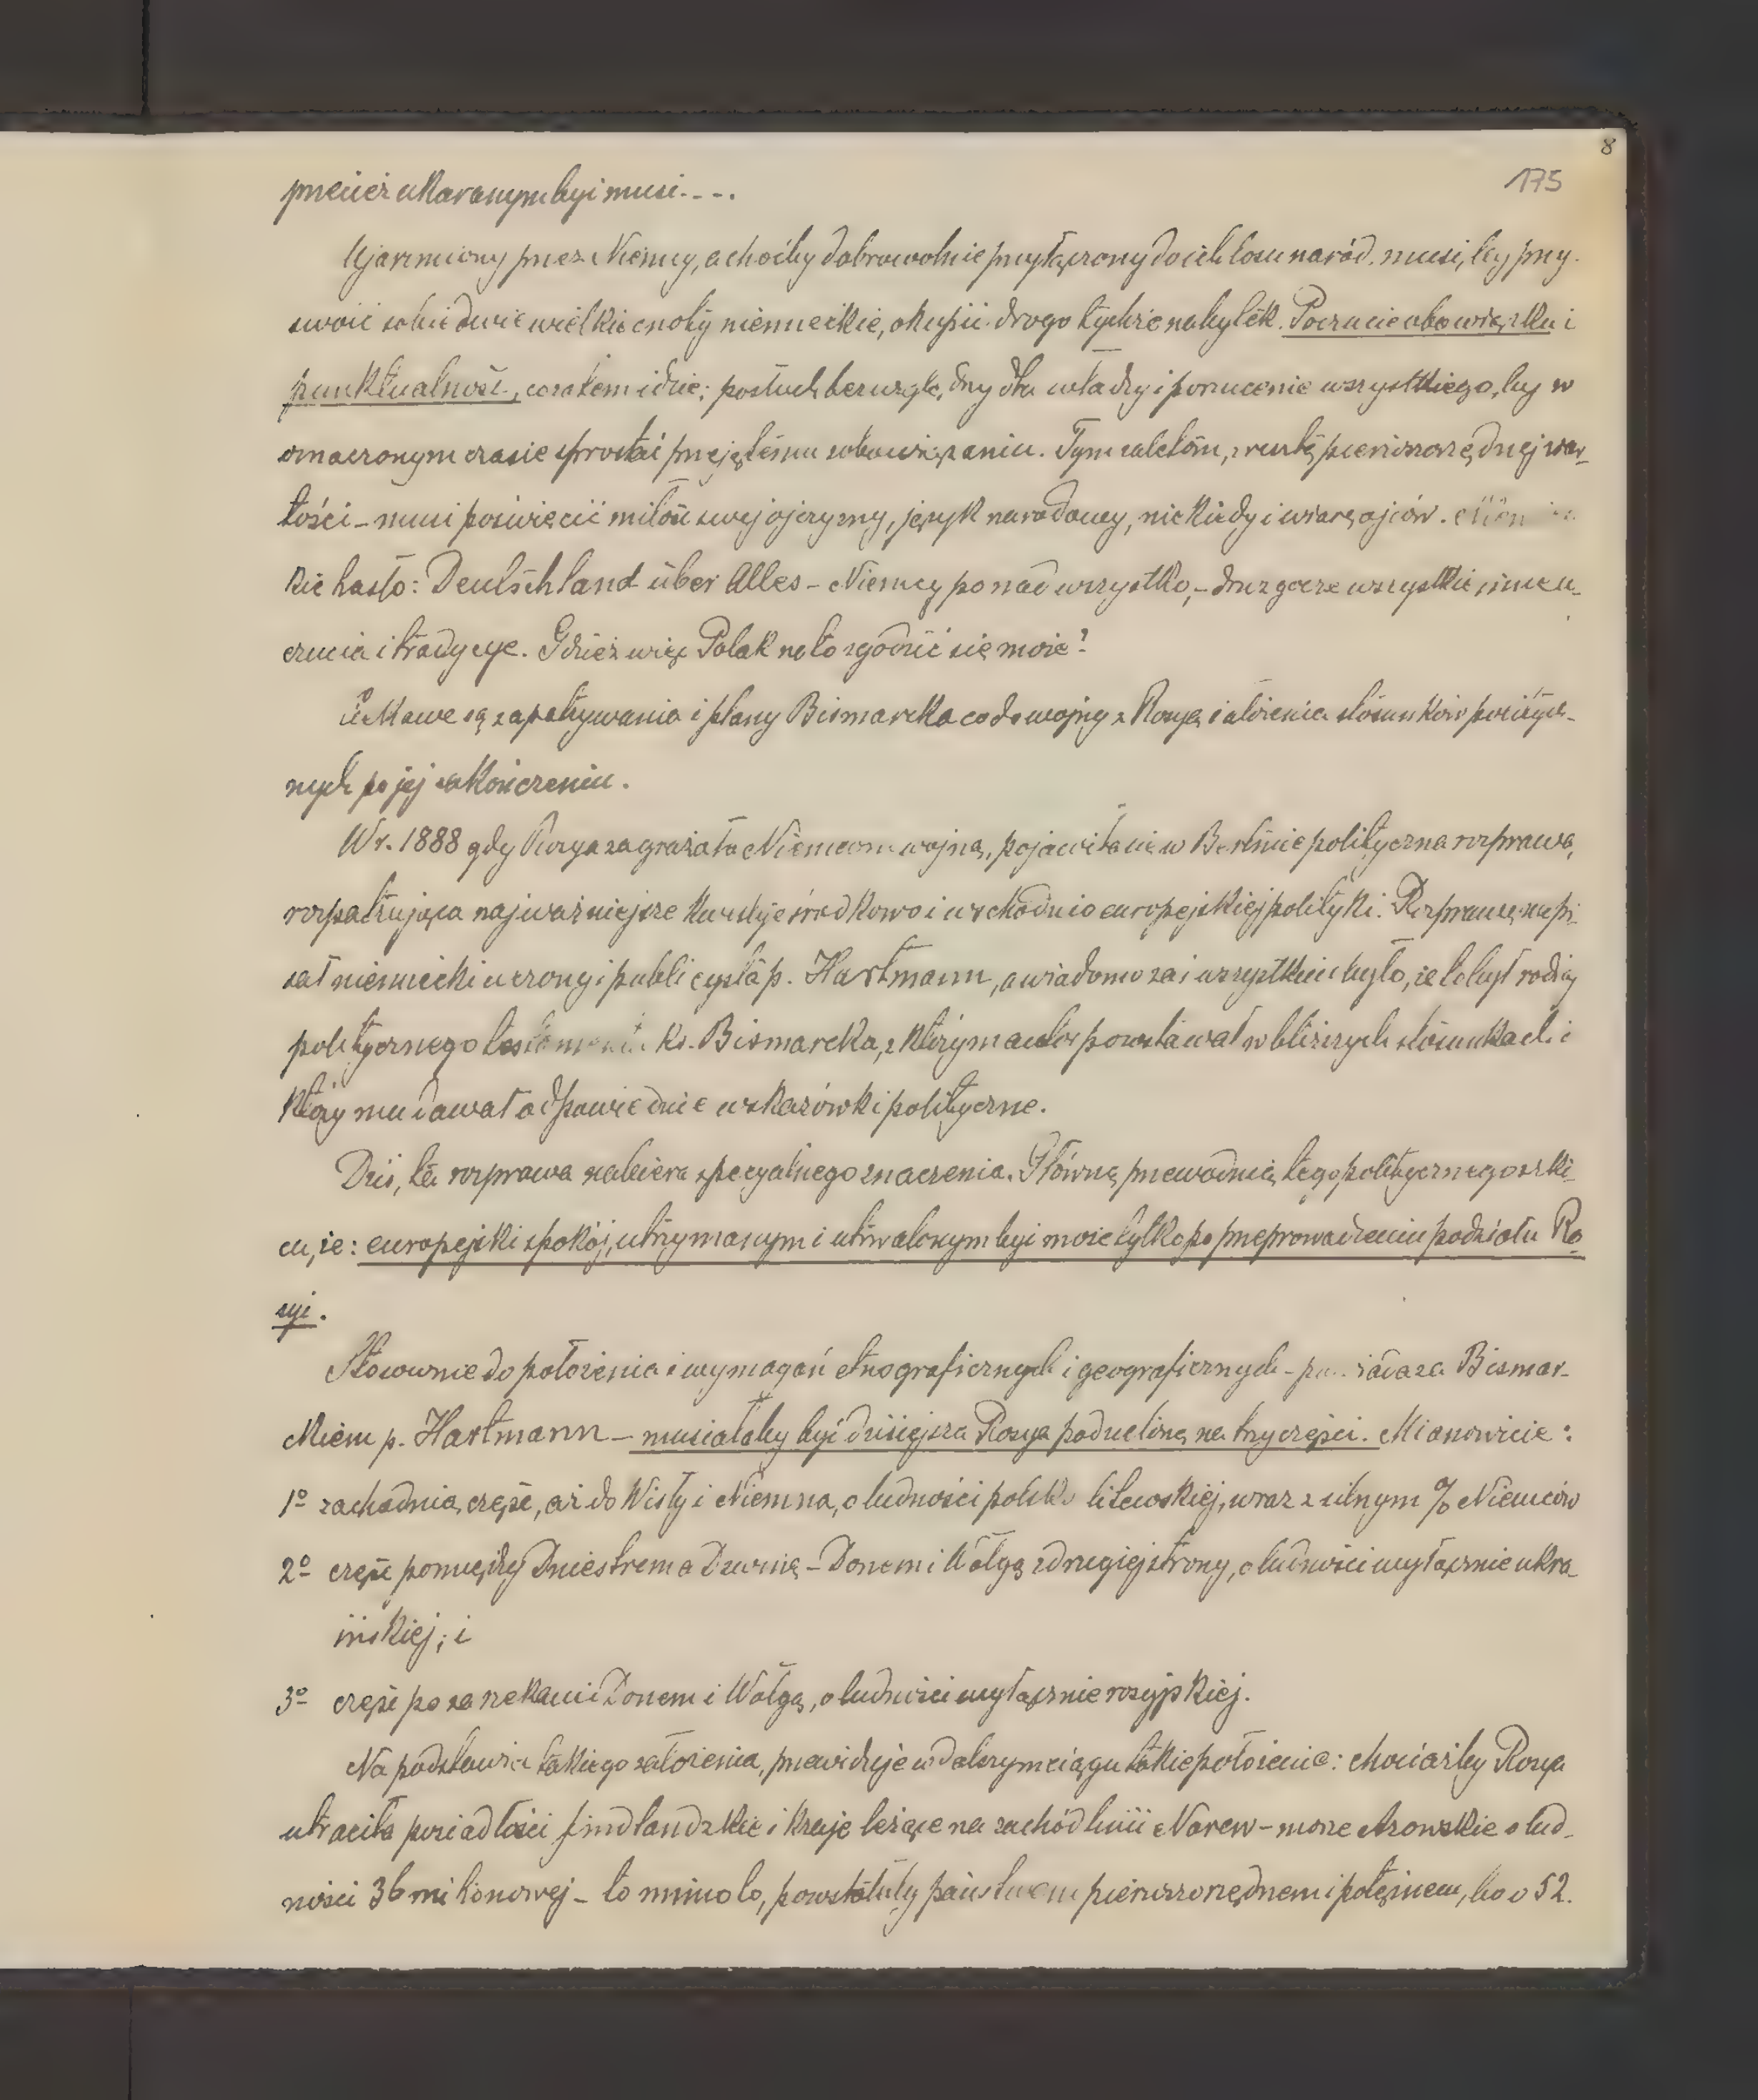 8
175
przecież ukaranym być musi....
Ujarzmiony przez Niemcy, a choćby dobrowolnie przyłączony do ich losu naród, musi, by przy-
swoić sobie dwie wielkie cnoty niemieckie, okupić drogo tychże nabytek. Poczucie obowiązku i
punktualność, co zatem idzie: posłuch bezwzględny dla władzy i porzucenie wszystkiego, by w
oznaczonym czasie sprostać przejętemu zobowiązaniu. Tym zaletom, zresztą pierwszorzędnej war-
tości – musi poświęcić miłość swej ojczyzny, język narodowy, niekiedy i wiarę ojców. Niemiec-
kie hasło: Deutschland über Alles – Niemcy ponad wszystko, – druzgocze wszystkie inne u-
czucia i tradycye. Gdzież więc Polak na to zgodzić się może?
Ciekawe są zapatrywania i plany Bismarcka co do wojny z Rosyą i ułożenia stosunków politycz-
nych po jej zakończeniu.
W r. 1888 gdy Rosya zagrażała Niemcom wojną, pojawiła się w Berlinie polityczna rozprawa,
rozpatrująca najważniejsze kwestye środkowo i wschodnio europejskiej polityki. Rozprawę napi-
sał niemiecki uczony i publicysta p. Hartmann, a wiadomo zaś wszystkim było, że to był rodzaj
politycznego testamentu ks. Bismarcka, z którym autor pozostawał w bliższych stosunkach i
który mu dawał odpowiednie wskazówki polityczne.
Dziś, ta rozprawa nabiera specyalnego znaczenia. Główną przewodnią tego politycznego szki-
cu, że: europejski spokój, utrzymanym i utrwalonym być może tylko po przeprowadzeniu podziału Ro-
syi.
Stosownie do położenia i wymagań etnograficznych i geograficznych – powiada za Bismar-
ckiem p. Hartmann – musiałaby być dzisiejsza Rosya podzieloną na trzy części. Mianowicie:
1º zachodnią część, aż do Wisły i Niemna, o ludności polsko litewskiej, wraz z silnym % Niemców
2º część pomiędzy Dniestrem a Dźwiną – Donem i Wołgą z drugiej strony, o ludności wyłącznie ukra-
ińskiej; i
3º część poza rzekami Donem i Wołgą, o ludności wyłącznie rosyjskiej.
Na podstawie takiego założenia, przewiduje w dalszym ciągu takie położenie: chociażby Rosya
utraciła posiadłości findlandzkie i kraje leżące na zachód linii Narew – morze Azowskie o lud-
ności 36 milionowej – to mimo to, powstałaby państwem pierwszorzędnem i potężnem, bo o 52.